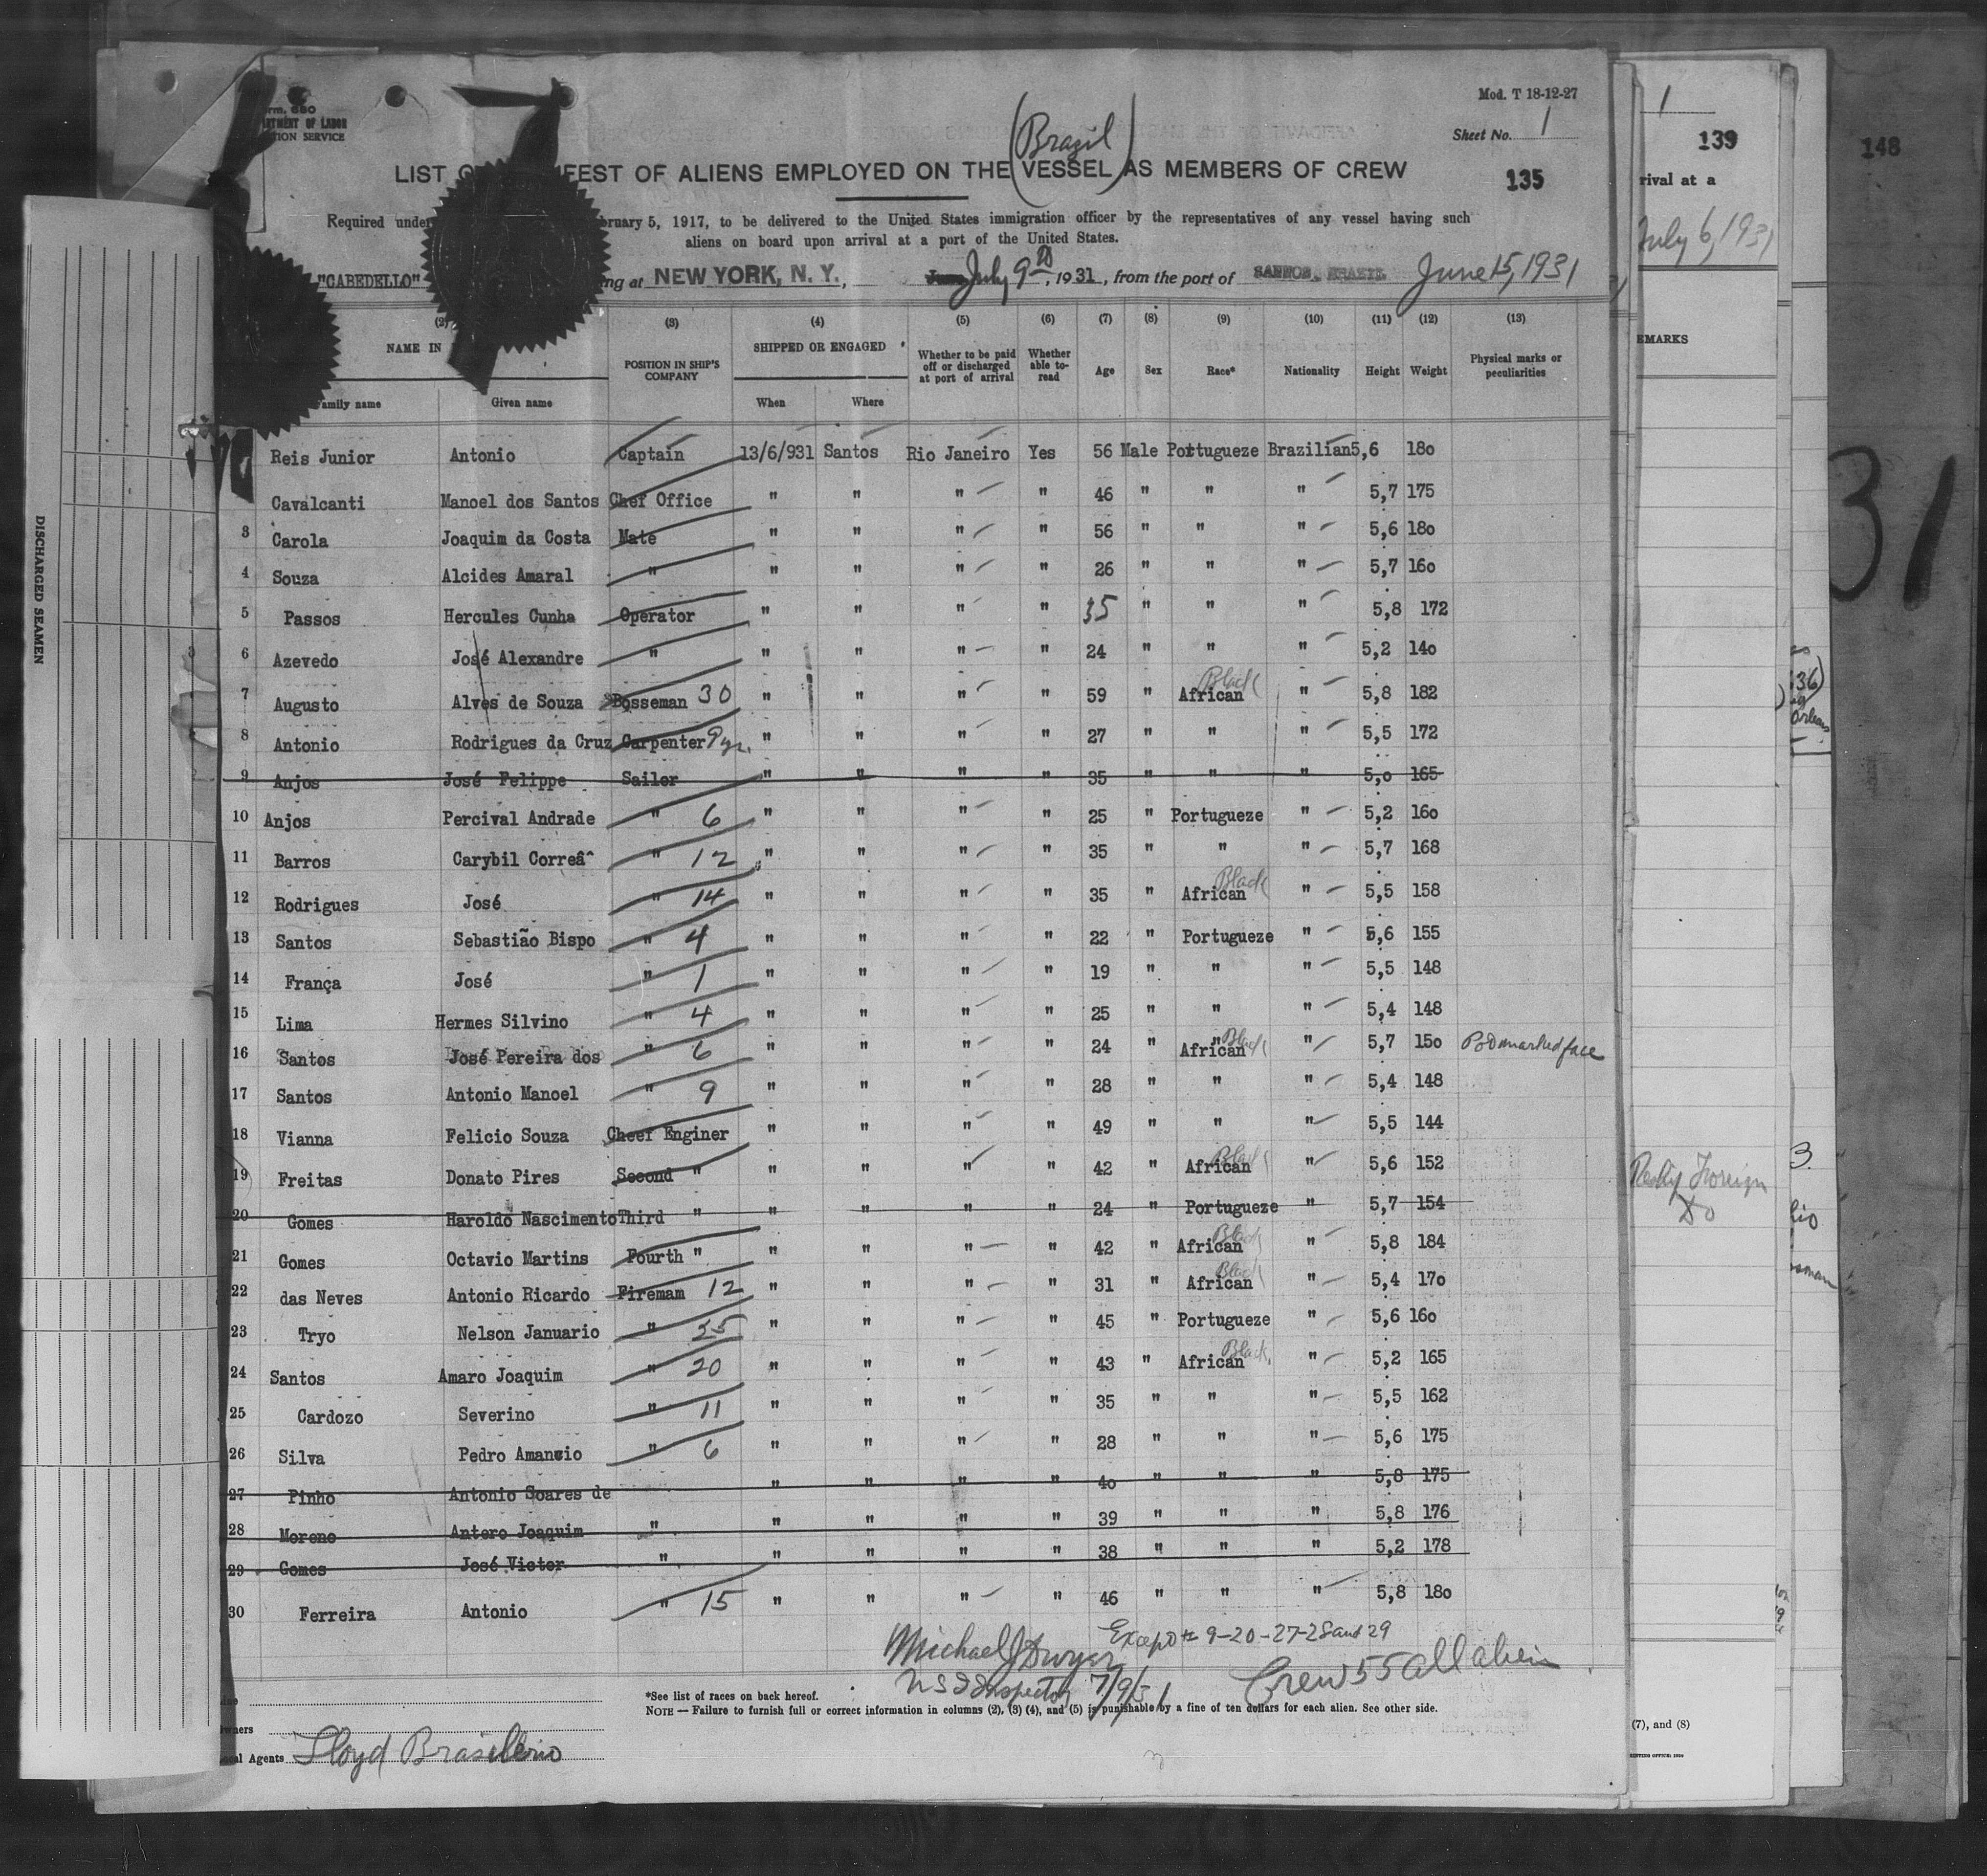 Mod. T 18-12-27
Form. 680
DEPARTMENT OF LABOR
IMMIGRATION SERVICE
Sheet No. 1
(Brazil)
LIST OF MANIFEST OF ALIENS EMPLOYED ON THE VESSEL AS MEMBERS OF CREW
135
Required under bruary 5, 1917, to be delivered to the United States immigration officer by the representatives of any vessel having such
aliens on board upon arrival at a port of the United States.
"CABEDELLO" ng at NEW YORK, N. Y., July 9th, 1931, from the port of SANTOS, BRAZIL June 15, 1931
(2) (3) (4) (5) (6) (7) (8) (9) (10) (11) (12) (13)
NAME IN POSITION IN SHIP'S COMPANY SHIPPED OR ENGAGED Whether to be paid off or discharged at port of arrival Whether able to read Age Sex Race* Nationality Height Weight Physical marks or peculiarities
Family name Given name When Where
Reis Junior Antonio Captain 13/6/931 Santos Rio Janeiro Yes 56 Male Portugueze Brazilian 5,6 180
Cavalcanti Manoel dos Santos Chef Office " " " " 46 " " " 5,7 175
3 Carola Joaquim da Costa Mate " " " " 56 " " " 5,6 180
4 Souza Alcides Amaral " " " " " 26 " " " 5,7 160
5 Passos Hercules Cunha Operator " " " " 35 " " " 5,8 172
6 Azevedo José Alexandre " " " " " 24 " " " 5,2 140
7 Augusto Alves de Souza Bosseman 30 " " " " 59 " African Black " 5,8 182
8 Antonio Rodrigues da Cruz Carpenter 9 yr. " " " " 27 " " " 5,5 172
9 Anjos José Felippe Sailor " " " " 35 " " " 5,0 165
10 Anjos Percival Andrade " 6 " " " " 25 " Portugueze " 5,2 160
11 Barros Carybil Correâ " 12 " " " " 35 " " " 5,7 168
12 Rodrigues José " 14 " " " " 35 " African Black " 5,5 158
13 Santos Sebastião Bispo " 4 " " " " 22 " Portugueze " 5,6 155
14 França José " 1 " " " " 19 " " " 5,5 148
15 Lima Hermes Silvino " 4 " " " " 25 " " " 5,4 148
16 Santos José Pereira dos " 6 " " " " 24 " African Black " 5,7 150 Pod marked face
17 Santos Antonio Manoel " 9 " " " " 28 " " " 5,4 148
18 Vianna Felicio Souza Cheef Enginer " " " " 49 " " " 5,5 144
19 Freitas Donato Pires Second " " " " " 42 " African Black " 5,6 152
20 Gomes Haroldo Nascimento Third " " " " " 24 " Portugueze " 5,7 154
21 Gomes Octavio Martins Fourth " " " " " 42 " African Black " 5,8 184
22 das Neves Antonio Ricardo Firemam 12 " " " " 31 " African Black " 5,4 170
23 Tryo Nelson Januario " 25 " " " " 45 " Portugueze " 5,6 160
24 Santos Amaro Joaquim " 20 " " " " 43 " African Black " 5,2 165
25 Cardozo Severino " 11 " " " " 35 " " " 5,5 162
26 Silva Pedro Amancio " 6 " " " " 28 " " " 5,6 175
27 Pinho Antonio Soares de " " " " 40 " " " 5,8 175
28 Moreno Antero Joaquim " " " " " 39 " " " 5,8 176
29 Gomes José Victor " " " " " 38 " " " 5,2 178
30 Ferreira Antonio " 15 " " " " 46 " " " 5,8 180
Except # 9-20-27-28 and 29
Michael J Dwyer
U S I Inspector 7/9/31
Crew 55 all alien
*See list of races on back hereof.
NOTE — Failure to furnish full or correct information in columns (2), (3) (4), and (5) is punishable by a fine of ten dollars for each alien. See other side.
Owners
Local Agents Lloyd Brasileiro
DISCHARGED SEAMEN
1
139
rival at a
July 6, 1931
EMARKS
Foreign
Do
(7), and (8)
148
31